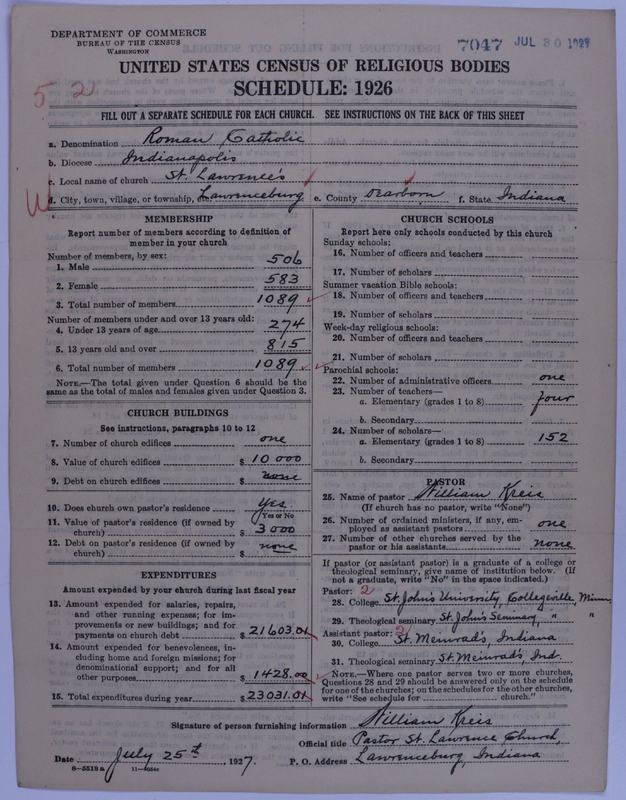 DEPARTMENT OF COMMERCE
BUREAU OF THE CENSUS
WASHINGTON
7047 JUL 30 1927
UNITED STATES CENSUS OF RELIGIOUS BODIES
SCHEDULE: 1926
52
FILL OUT A SEPARATE SCHEDULE FOR EACH CHURCH. SEE INSTRUCTIONS ON THE BACK OF THIS SHEET
a. Denomination Roman Catholic
b. Diocese Indianapolis
c. Local name of church St. Lawrence's
d. City, town, village, or township, Lawrenceburg e. County Dearborn f. State Indiana
MEMBERSHIP
Report number of members according to definition of
member in your church
Number of members, by sex:
1. Male 506
2. Female 583
3. Total number of members 1089
Number of members under and over 13 years old:
4. Under 13 years of age 274
5. 13 years old and over 815
6. Total number of members 1089
NOTE.—The total given under Question 6 should be the
same as the total of males and females given under Question 3.
CHURCH BUILDINGS
See instructions, paragraphs 10 to 12
7. Number of church edifices one
8. Value of church edifices $ 10 000
9. Debt on church edifices $ none
10. Does church own pastor's residence yes
Yes or No
11. Value of pastor's residence (if owned by
church) $ 3 000
12. Debt on pastor's residence (if owned by
church) $ none
EXPENDITURES
Amount expended by your church during last fiscal year
13. Amount expended for salaries, repairs,
and other running expenses; for im-
provements or new buildings; and for
payments on church debt $ 21603.01
14. Amount expended for benevolences, in-
cluding home and foreign missions; for
denominational support; and for all
other purposes $ 1428.00
15. Total expenditures during year $ 23031.01
CHURCH SCHOOLS
Report here only schools conducted by this church
Sunday schools:
16. Number of officers and teachers
17. Number of scholars
Summer vacation Bible schools:
18. Number of officers and teachers
19. Number of scholars
Week-day religious schools:
20. Number of officers and teachers
21. Number of scholars
Parochial schools:
22. Number of administrative officers one
23. Number of teachers—
a. Elementary (grades 1 to 8) four
b. Secondary
24. Number of scholars—
a. Elementary (grades 1 to 8) 152
b. Secondary
PASTOR
25. Name of pastor William Kreis
(If church has no pastor, write "None")
26. Number of ordained ministers, if any, em-
ployed as assistant pastors one
27. Number of other churches served by the
pastor or his assistants none
If pastor (or assistant pastor) is a graduate of a college or
theological seminary, give name of institution below. (If
not a graduate, write "No" in the space indicated.)
Pastor: 2
28. College St. John's University, Collegeville, Minn
29. Theological seminary St. John's Seminary, " "
Assistant pastor: 2
30. College St. Meinrad's, Indiana
31. Theological seminary St. Meinrad's, Ind.
NOTE.—Where one pastor serves two or more churches,
Questions 28 and 29 should be answered only on the schedule
for one of the churches; on the schedules for the other churches,
write "See schedule for church."
Signature of person furnishing information William Kreis
Official title Pastor St. Lawrence Church,
Date July 25th, 1927. P. O. Address Lawrenceburg, Indiana
8—5518a